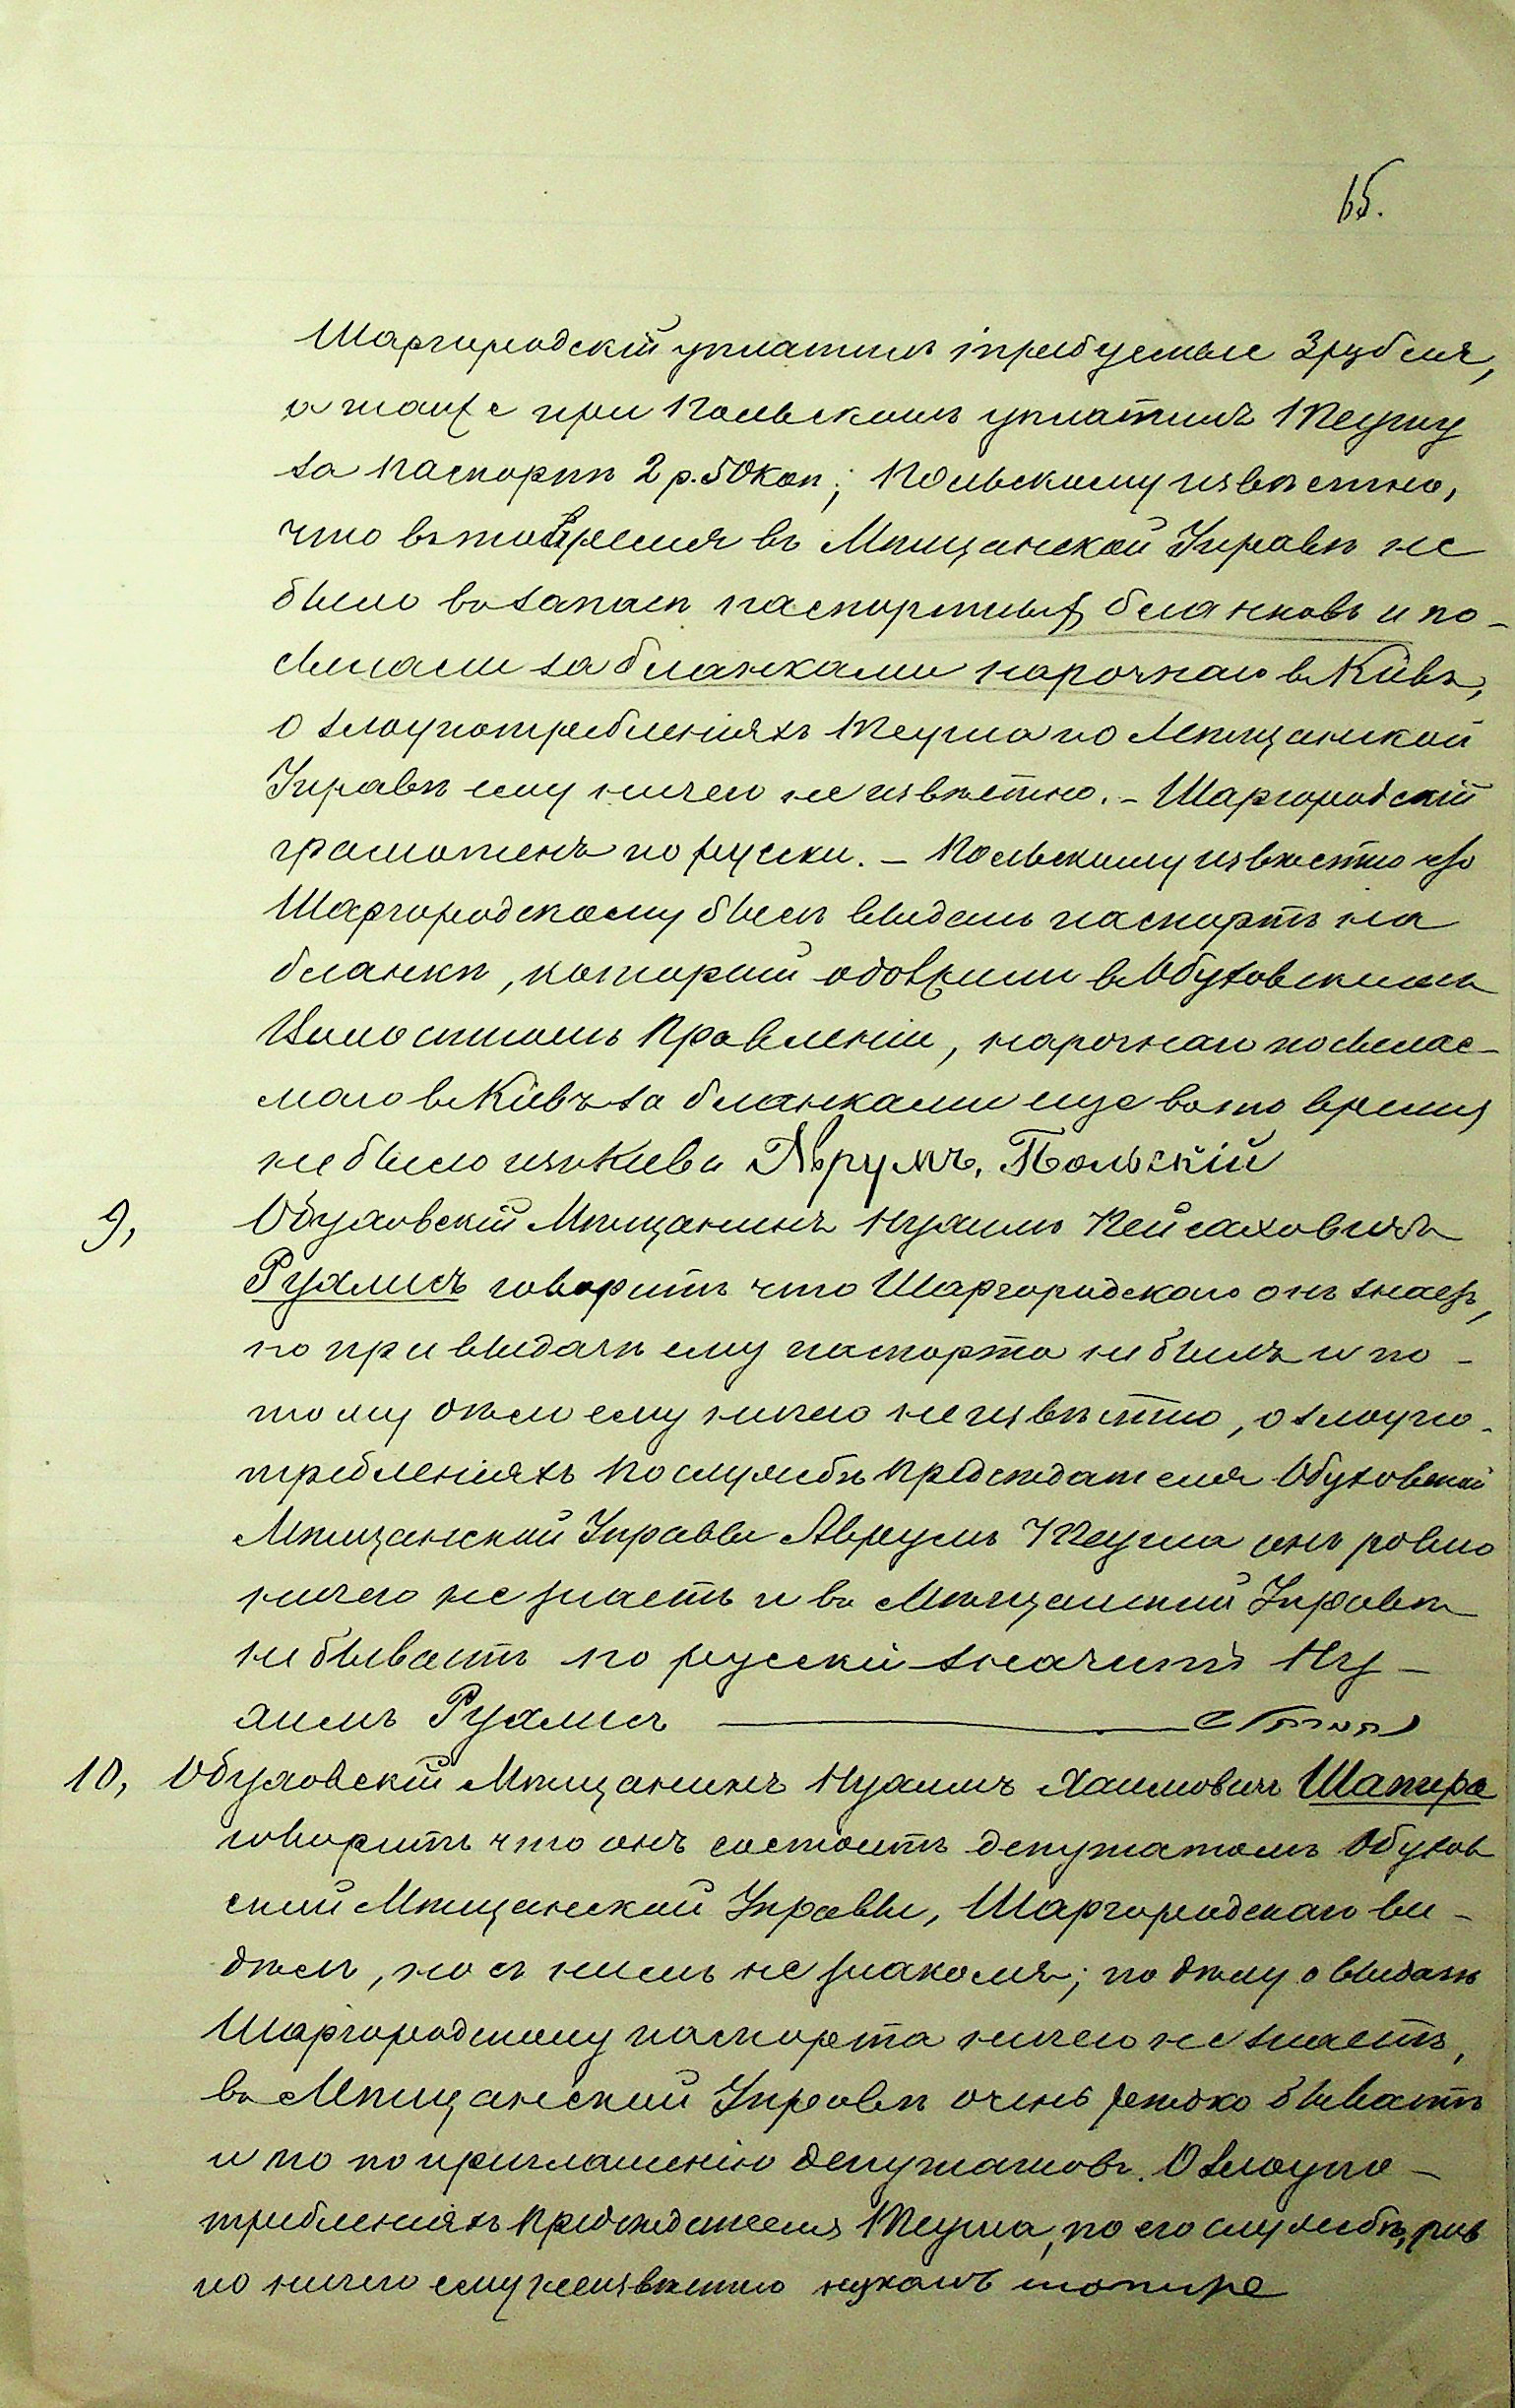 65.
Шаргородскій уплатилъ требуемые 3 рубля,
а также при Польскомъ уплатилъ Теушу
за паспортъ 2 р. 50 коп; Польскому извѣстно,
что въ то время въ Мѣщанской Управѣ не
было въ запасѣ паспортныхъ бланковъ и по-
сылали за бланками нарочнаго въ Кіевъ,
о злоупотребленіяхъ по Мѣщанской
Управѣ ему ничего не извѣстно. - Шаргородскій
грамотенъ по русски. - Польскому извѣстно что
Шаргородскому былъ выданъ паспортъ на
бланкѣ, который одолжили въ Обуховскомъ
Волостномъ Правленіи, нарочнаго посылае-
маго въ Кіевъ за бланками еще въ то время
не было изъ Кіева Аврумъ Польскій
9, Обуховскій Мѣщанинъ Нухимъ Пейсаховичъ
Рухлисъ говоритъ что Шаргородскаго онъ знаетъ,
но при выдачѣ ему паспорта не былъ и по-
тому ему ничего неизвѣстно, о злоупо-
требленіяхъ по службѣ предсѣдателя Обуховской
Мѣщанской Управы Аврумъ онъ ровно
ничего не знаетъ и въ Мѣщанской Управѣ
не бываетъ по русски значитъ Ну-
химъ Рухлисъ
10, Обуховскій Мѣщанинъ Нухимъ Хаимовичъ Шапиро
говоритъ что онъ состоитъ депутатомъ Обухов
ской Мѣщанской Управы, Шаргородскаго ви-
дѣлъ, но съ нимъ не знакомъ; по дѣлу о выдачѣ
Шаргородскому паспорта ничего не знаетъ,
въ Мѣщанской Управѣ очень рѣдко бываетъ
и то по приглашенію депутатовъ. О злоупо-
требленіяхъ предсѣдателя по его службѣ, ров
но ничего ему неизвѣстно нухомъ шопире